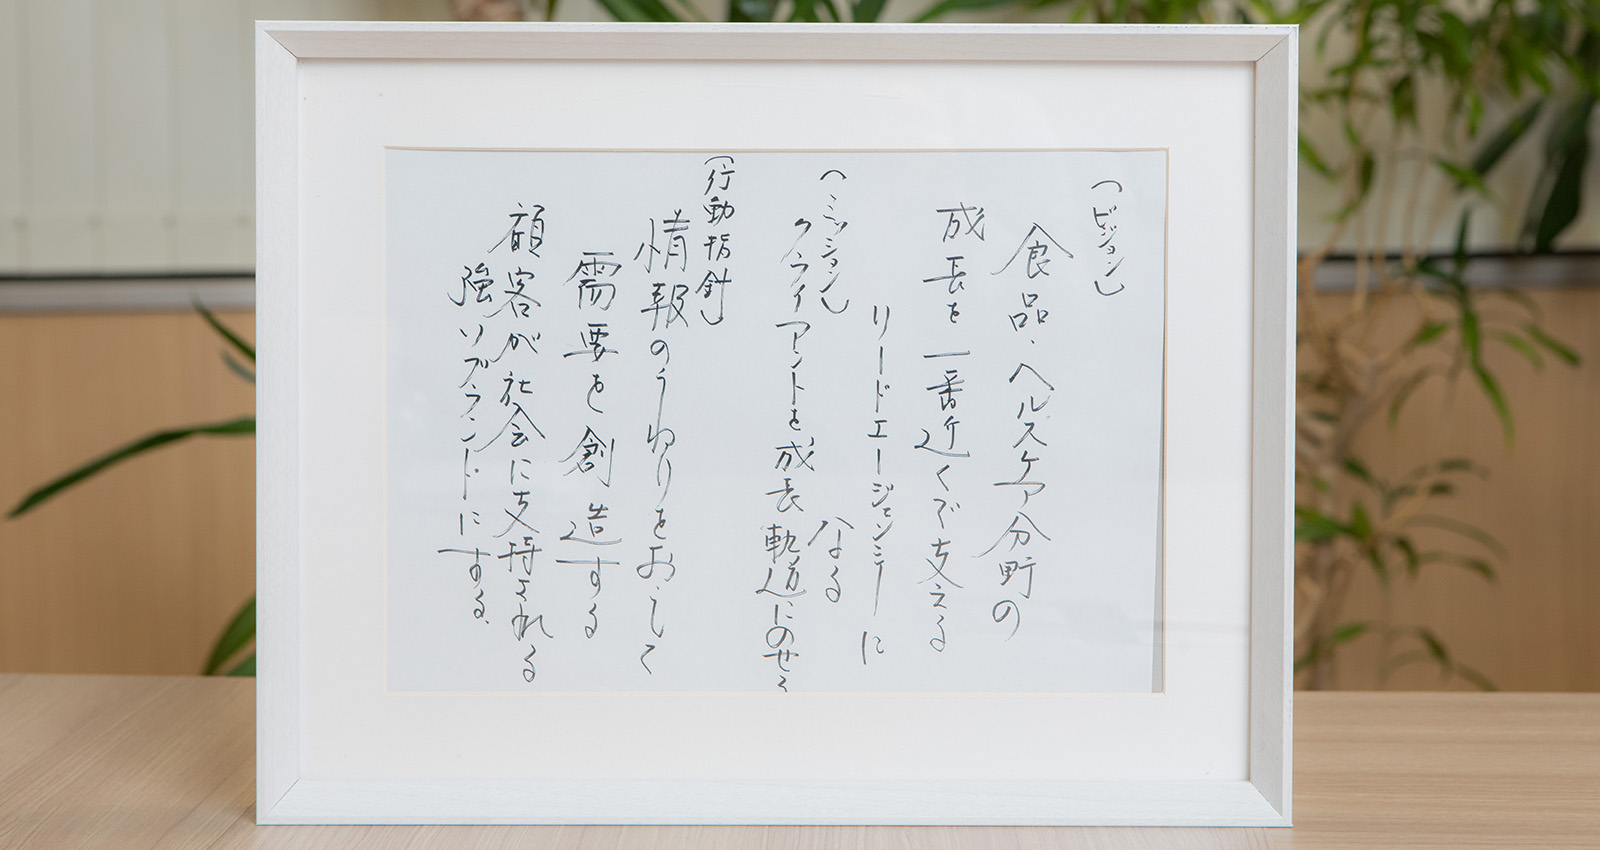 （ビジョン）
食品、ヘルスケア分野の
成長を一番近くで支える
リードエージェンシーに
なる
（ミッション）
クライアントを成長軌道にのせる
（行動指針）
情報のうねりをおこして
需要を創造する
顧客が社会に支持される
強いブランドにする。